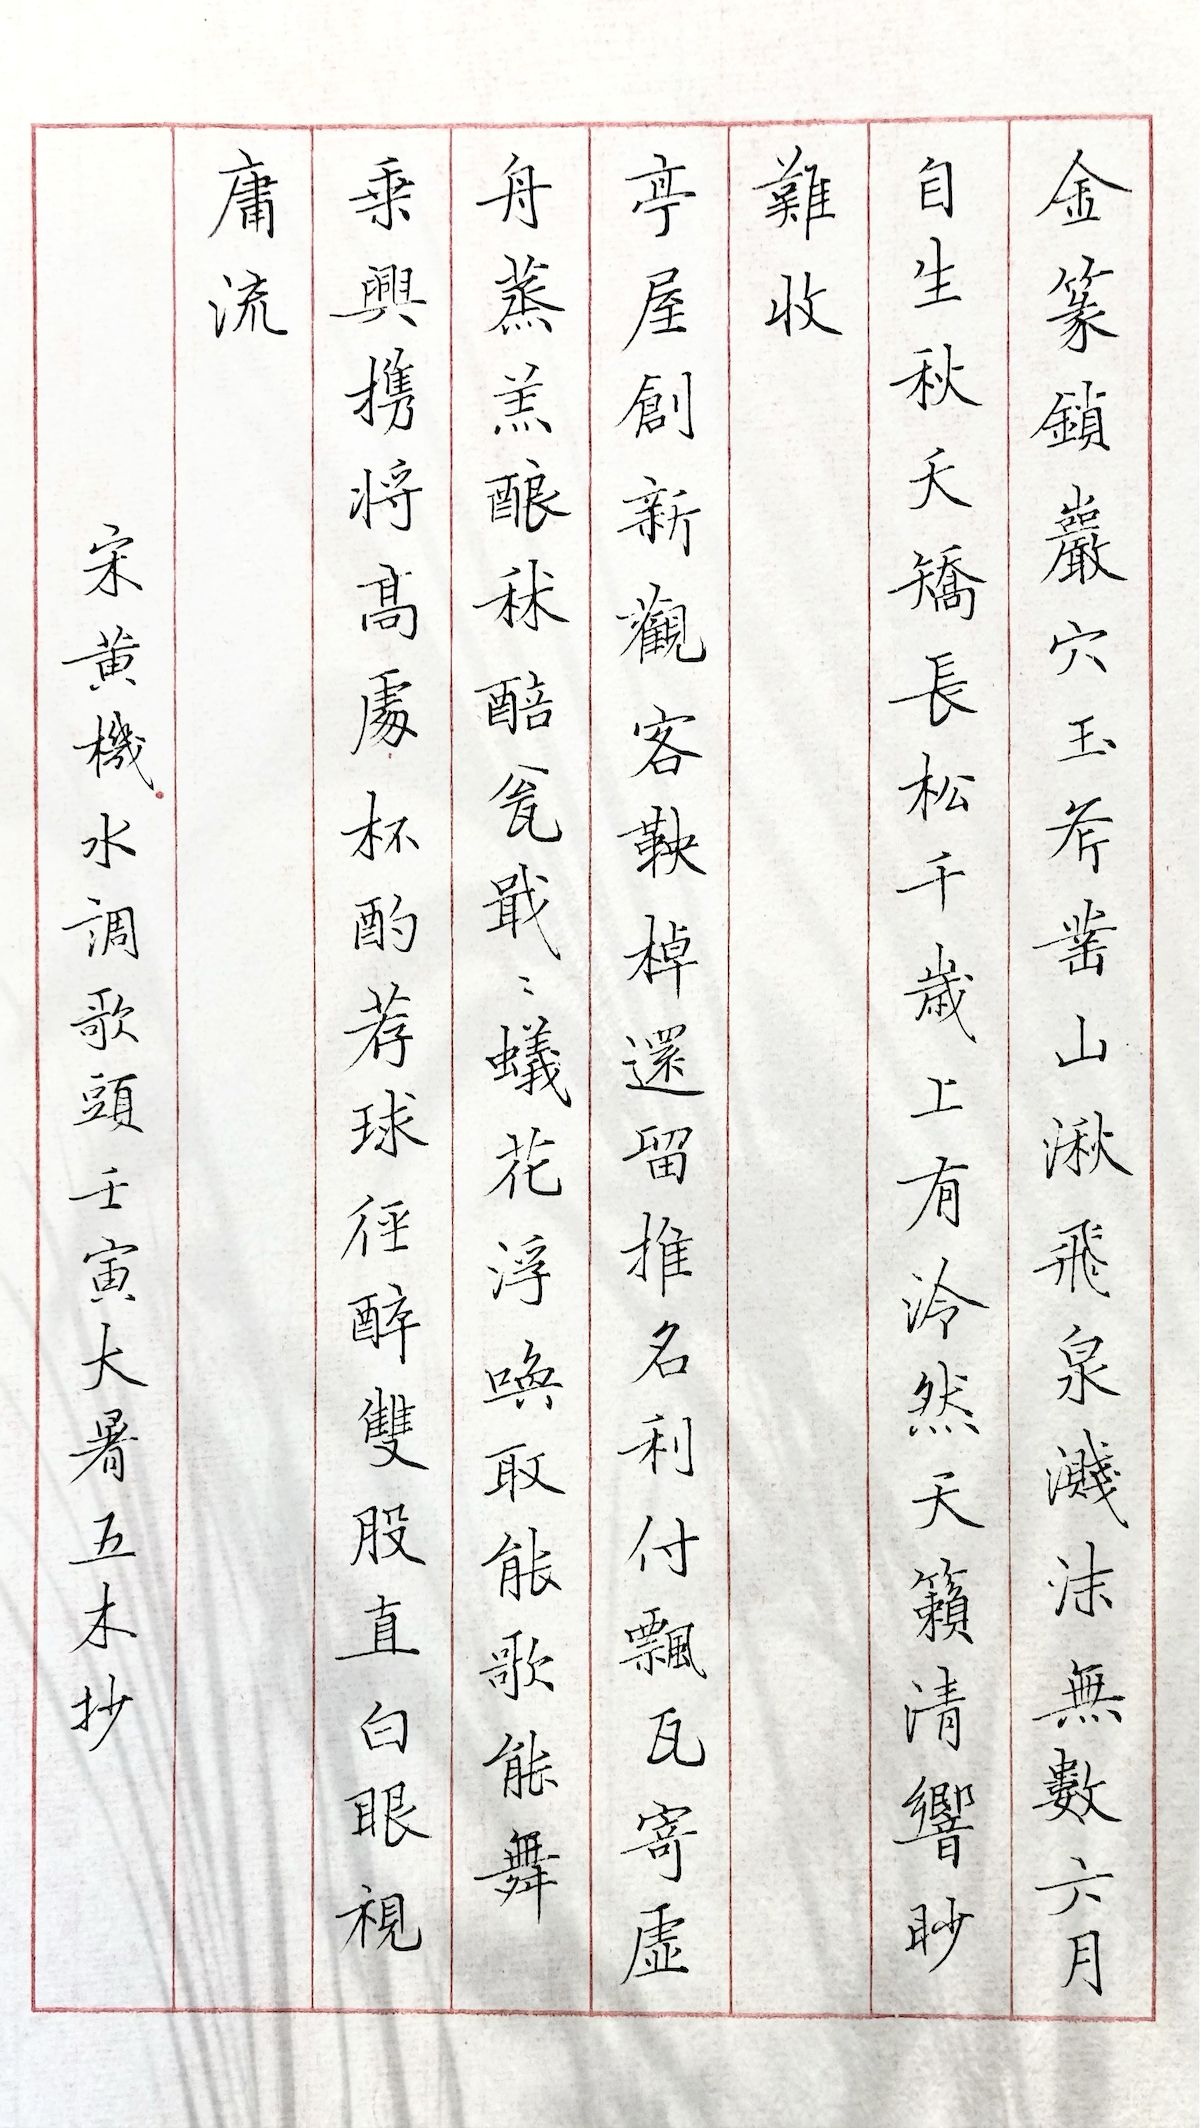 金篆鎖巖穴玉斧鑿山湫飛泉濺沫無數六月
自生秋夭矯長松千歲上有泠然天籟清響眇
難收
亭屋創新觀客鞅棹還留推名利付飄瓦寄虛
舟蒸羔釀秫醅瓮戢〻蟻花浮喚取能歌能舞
乘興携將高處杯酌荐球徑醉雙股直白眼視
庸流
宋黄機水調歌頭壬寅大暑五木抄